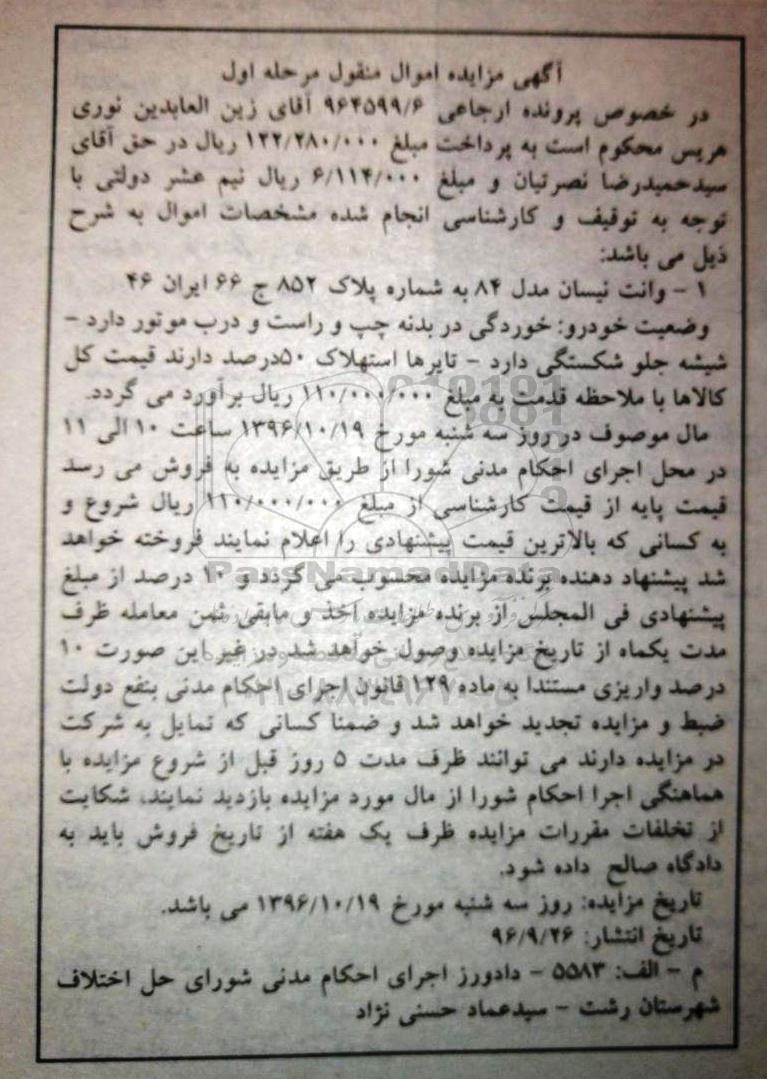 آگهی مزایده اموال منقول مرحله اول
در خصوص پرونده ارجاعی ۹۶۴۵۹۹/۶ آقای زین العابدین نوری
هریس محکوم است به پرداخت مبلغ ۱۲۲/۲۸۰/۰۰۰ ریال در حق آقای
سیدحمیدرضا نصرتیان و مبلغ ۶/۱۱۴/۰۰۰ ریال نیم عشر دولتی با
توجه به توقیف و کارشناسی انجام شده مشخصات اموال به شرح
ذیل می باشد:
۱ - وانت نیسان مدل ۸۴ به شماره پلاک ۸۵۲ ج ۶۶ ایران ۴۶
وضعیت خودرو: خوردگی در بدنه چپ و راست و درب موتور دارد -
شیشه جلو شکستگی دارد - تایرها استهلاک ۵۰درصد دارند قیمت کل
کالاها با ملاحظه قدمت به مبلغ ۱۱۰/۰۰۰/۰۰۰ ریال برآورد می گردد.
مال موصوف در روز سه شنبه مورخ ۱۳۹۶/۱۰/۱۹ ساعت ۱۰ الی ۱۱
در محل اجرای احکام مدنی شورا از طریق مزایده به فروش می رسد
قیمت پایه از قیمت کارشناسی از مبلغ ۱۱۰/۰۰۰/۰۰۰ ریال شروع و
به کسانی که بالاترین قیمت پیشنهادی را اعلام نمایند فروخته خواهد
شد پیشنهاد دهنده برنده مزایده محسوب می گردد و ۱۰ درصد از مبلغ
پیشنهادی فی المجلس از برنده مزایده اخذ و مابقی ثمن معامله ظرف
مدت یکماه از تاریخ مزایده وصول خواهد شد در غیر این صورت ۱۰
درصد واریزی مستندا به ماده ۱۲۹ قانون اجرای احکام مدنی بنفع دولت
ضبط و مزایده تجدید خواهد شد و ضمنا کسانی که تمایل به شرکت
در مزایده دارند می توانند ظرف مدت ۵ روز قبل از شروع مزایده با
هماهنگی اجرا احکام شورا از مال مورد مزایده بازدید نمایند، شکایت
از تخلفات مقررات مزایده ظرف یک هفته از تاریخ فروش باید به
دادگاه صالح داده شود.
تاریخ مزایده: روز سه شنبه مورخ ۱۳۹۶/۱۰/۱۹ می باشد.
تاریخ انتشار: ۹۶/۹/۲۶
م - الف: ۵۵۸۳ - دادورز اجرای احکام مدنی شورای حل اختلاف
شهرستان رشت - سیدعماد حسنی نژاد
ParsNamadData